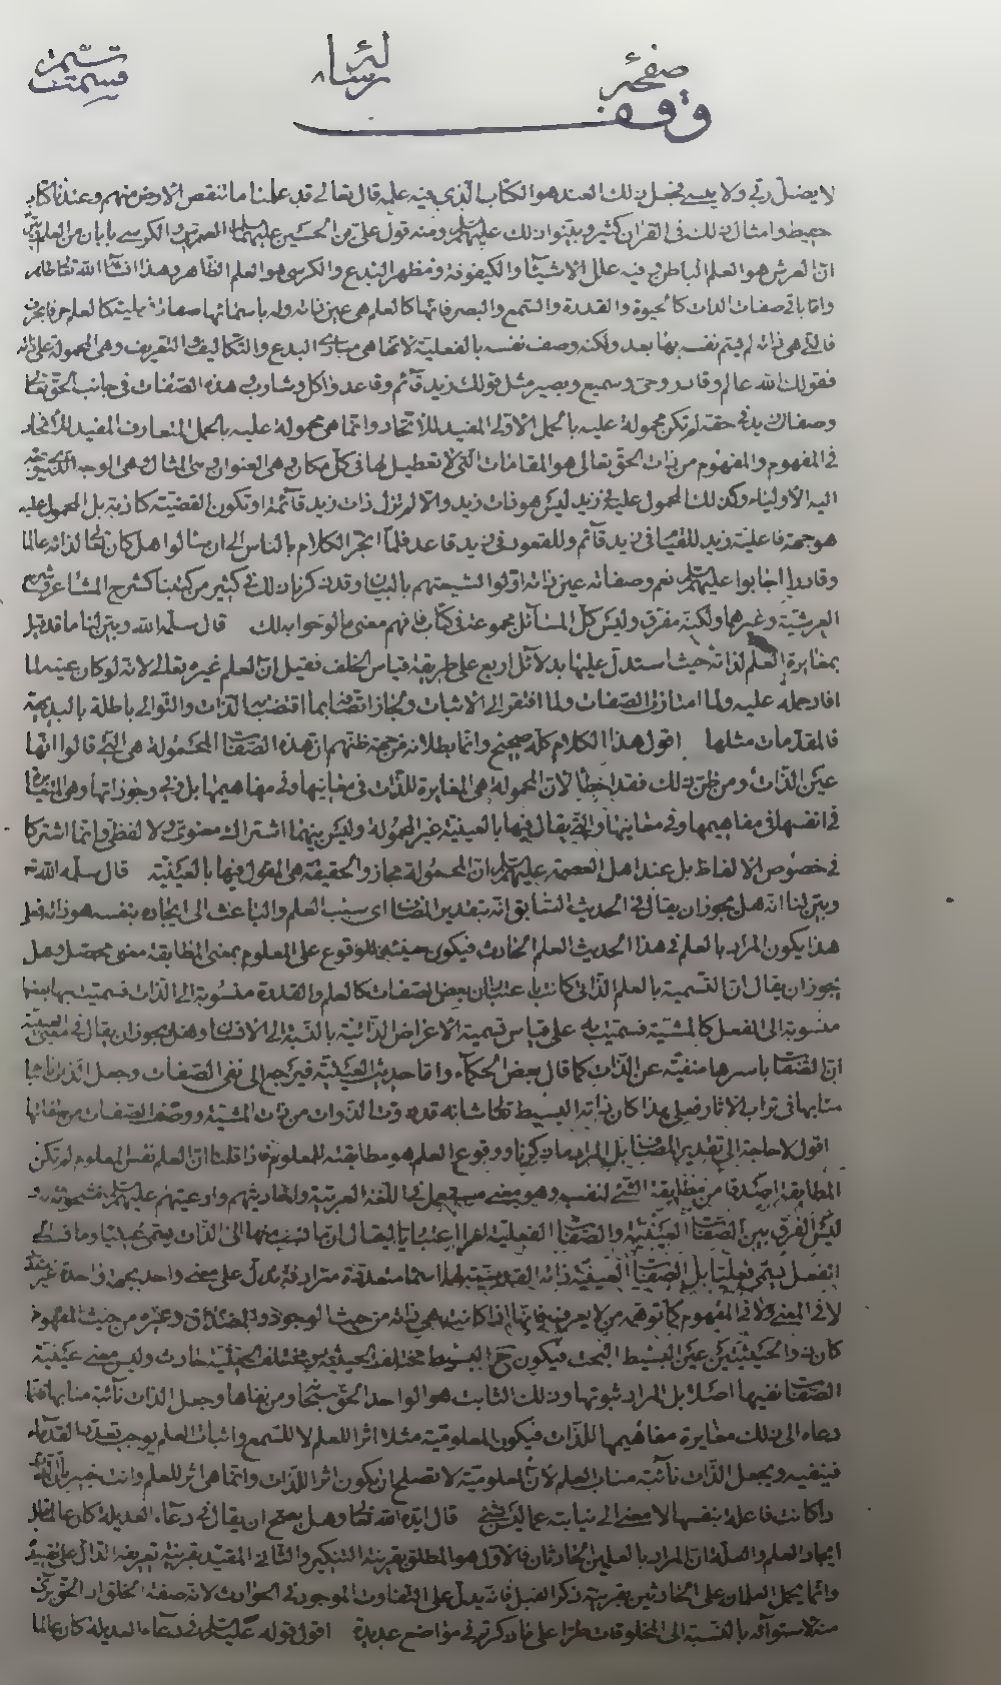 صفحة
وقف
لا يضل ربي ولا ينسى فجعل ذلك العند هو الكتاب الذي فيه علمه قال تعالى قد علمنا ما تنقص الارض منهم وعندنا كتاب
حفيظ وامثال ذلك في القران كثير وبينوا ذلك عليهم السلام ومنه قول علي بن الحسين عليهما السلام العرش والكرسي بابان من العلم
ان العرش هو العلم الباطن وفيه علل الاشياء والكيفوفة ومظهر البدع والكرسي هو العلم الظاهر وهذا انشاء الله تعالى ظاهر
واما باقي صفات الذات كالحيوة والقدرة والسمع والبصر فانها كالعلم هي عين ذاته وله باسمائها صفات فعلية كالعلم حرفا بحرف
فالتي هي ذاته لم يتم نفسه بها بعد ولكنه وصف نفسه بالفعلية لانها هي مبادي البدع والتكاليف والتعريف وهي المحمولة على ذاته
فقولك الله عالم وقادر وحي وسميع وبصير مثل قولك زيد قائم وقاعد واكل وشارب هذه الصفات في جانب الحق تعالى
وصفات زيد في حقه لم تكن محمولة عليه بالحمل الاولي المفيد للاتحاد وانما هي محمولة عليه بالحمل المتعارف المفيد للاتحاد
في المفهوم والمفهوم من ذات الحق تعالى هو المقامات التي لا تعطيل لها في كل مكان وهي العنوان وهي المثال وهي الوجه الذي يتوجه
اليه الاولياء وكذلك المحمول عليه في زيد ليس هو ذات زيد والا لم تزل ذات زيد قائمة او تكون القضية كاذبة بل المحمول عليه
هو جهة فاعلية زيد للقيام في زيد قائم وللقعود في زيد قاعد فلما انجر الكلام بالناس الى ان سالوا هل كان تعالى لذاته عالما
وقادرا اجابوا عليهم السلام نعم وصفاته عين ذاته اولوا لشيعتهم بالبيان وقد ذكرنا ذلك في كثير من كتبنا كشرح المشاعر وشرح
العرشية وغيرهما ولكنه مفرق وليس كل المسائل مجموعة في كتاب فافهم معنى ما لوحوا به لك قال سلمه الله وبين لنا ما قد قيل
بمغايرة العلم لذاته حيث استدل عليها بدلائل اربع على طريقة قياس الخلف فقيل ان العلم غيره تعالى لانه لو كان عينه لما
افاد حمله عليه ولما امتازت الصفات ولما افتقر الى الاثبات ولجاز اتصافها بما اقتضته الذات والتوالي باطلة بالبديهة
فالمقدمات مثلها اقول هذا الكلام كله صحيح وانما بطلانه من جهة ظنهم ان هذه الصفات المحمولة هي التي قالوا انها
عين الذات ومن ظن ذلك فقد اخطا لان المحمولة هي المغايرة للذات في معانيها وفي مفاهيمها بل وفي وجوداتها وهي المتغايرة
في انفسها في مفاهيمها وفي معانيها والتي يقال فيها بالعينية غير المحمولة وليس بينهما اشتراك معنوي ولا لفظي وانما اشتركا
في خصوص الالفاظ بل عند اهل العصمة عليهم السلام ان المحمولة مجاز والحقيقة هي المقول فيها بالعينية قال سلمه الله
وبين لنا انه هل يجوز ان يقال في الحديث السابق انه بتقدير المضاف اي سبب العلم والباعث الى ايجاده بنفسه هو ذاته فعلى
هذا يكون المراد بالعلم في هذا الحديث العلم الحادث فيكون حينئذ للوقوع على المعلوم بمعنى المطابقة معنى محصل وهل
يجوز ان يقال ان التسمية بالعلم الذاتي كانت باعتبار ان بعض الصفات كالعلم والقدرة منسوبة الى الذات فسميت بها وبعضها
منسوبة الى الفعل كالمشية فسميت به على قياس قسمية الاعراض الذاتية بالنسبة الى الانسان وهل يجوز ان يقال في معنى العينية
ان الصفات باسرها منفية عن الذات كما قال بعض الحكماء واما حديث العينية فيرجع الى نفي الصفات وجعل الذات نائبا
منابها في ترتب الاثار فعلى هذا كان ذاته البسيط تعالى شانه قد ذوت الذوات من ذات المشية ووصف الصفات من صفاتها
اقول لا حاجة الى تقدير المضاف بل المراد ما ذكرنا ووقوع العلم هو مطابقته للمعلوم فاذا قلنا ان العلم نفس المعلوم لم تكن
المطابقة اصدق من مطابقة الشيء لنفسه وهو معنى مستعمل في اللغة العربية واحاديثهم وادعيتهم عليهم السلام مشحونة به
ليس الفرق بين الصفات العينية والصفات الفعلية امرا اعتباريا ليقال ان ما نسب منها الى الذات يسمى عينيا وما نسب الى
الفعل يسمى فعليا بل الصفات العينية ذاته القديمة لها اسما متعددة مترادفة تدل على معنى واحد بجهة واحدة
لا في المعنى ولا في المفهوم كما توهمه من لا يعرف فانها اذا كانت هي ذاته من حيث الوجود والمصداق وغيره من حيث المفهوم
كان ذو الحيثيتين عين البسيط البحت فيكون ح البسيط مختلف الحيثية ومختلف الحيثية حادث وليس معنى عينية
الصفات نفيها اصلا بل المراد ثبوتها وذلك الثابت هو الواحد الحق سبحانه ومن نفاها وجعل الذات نائبة منابها فانما
دعاه الى ذلك مغايرة مفاهيمها للذات فيكون المعلومية مثلا اثرا للعلم لا للسمع واثبات العلم يوجب تعدد القدماء
فينفيه ويجعل الذات نائبة مناب العلم لان المعلومية لا تصلح ان يكون اثرا للذات وانما هي اثر للعلم وانت خبير بان الذات
اذا كانت فاعلة بنفسها لا معنى الى نيابته عما ليس بشيء قال ايده الله تعالى وهل يصح ان يقال في دعاء العديلة كان عالما قبل
ايجاد العلم والعلة ان المراد بالعلمين الحادثان فالاول هو المطلق بقرينة التنكير والثاني المقيد بقرينة تعريفه الدال على تقييده
وانما يحمل العلمان على الحادثين بقرينة ذكر القبل فانه يدل على التفاوت الموجود في الحوادث لانه صفة الخلق اذ الحق بريء
منه لاستوائه بالنسبة الى المخلوقات طرا على ما ذكرتم في مواضع عديدة اقول قوله عليه السلام في دعاء العديلة كان عالما